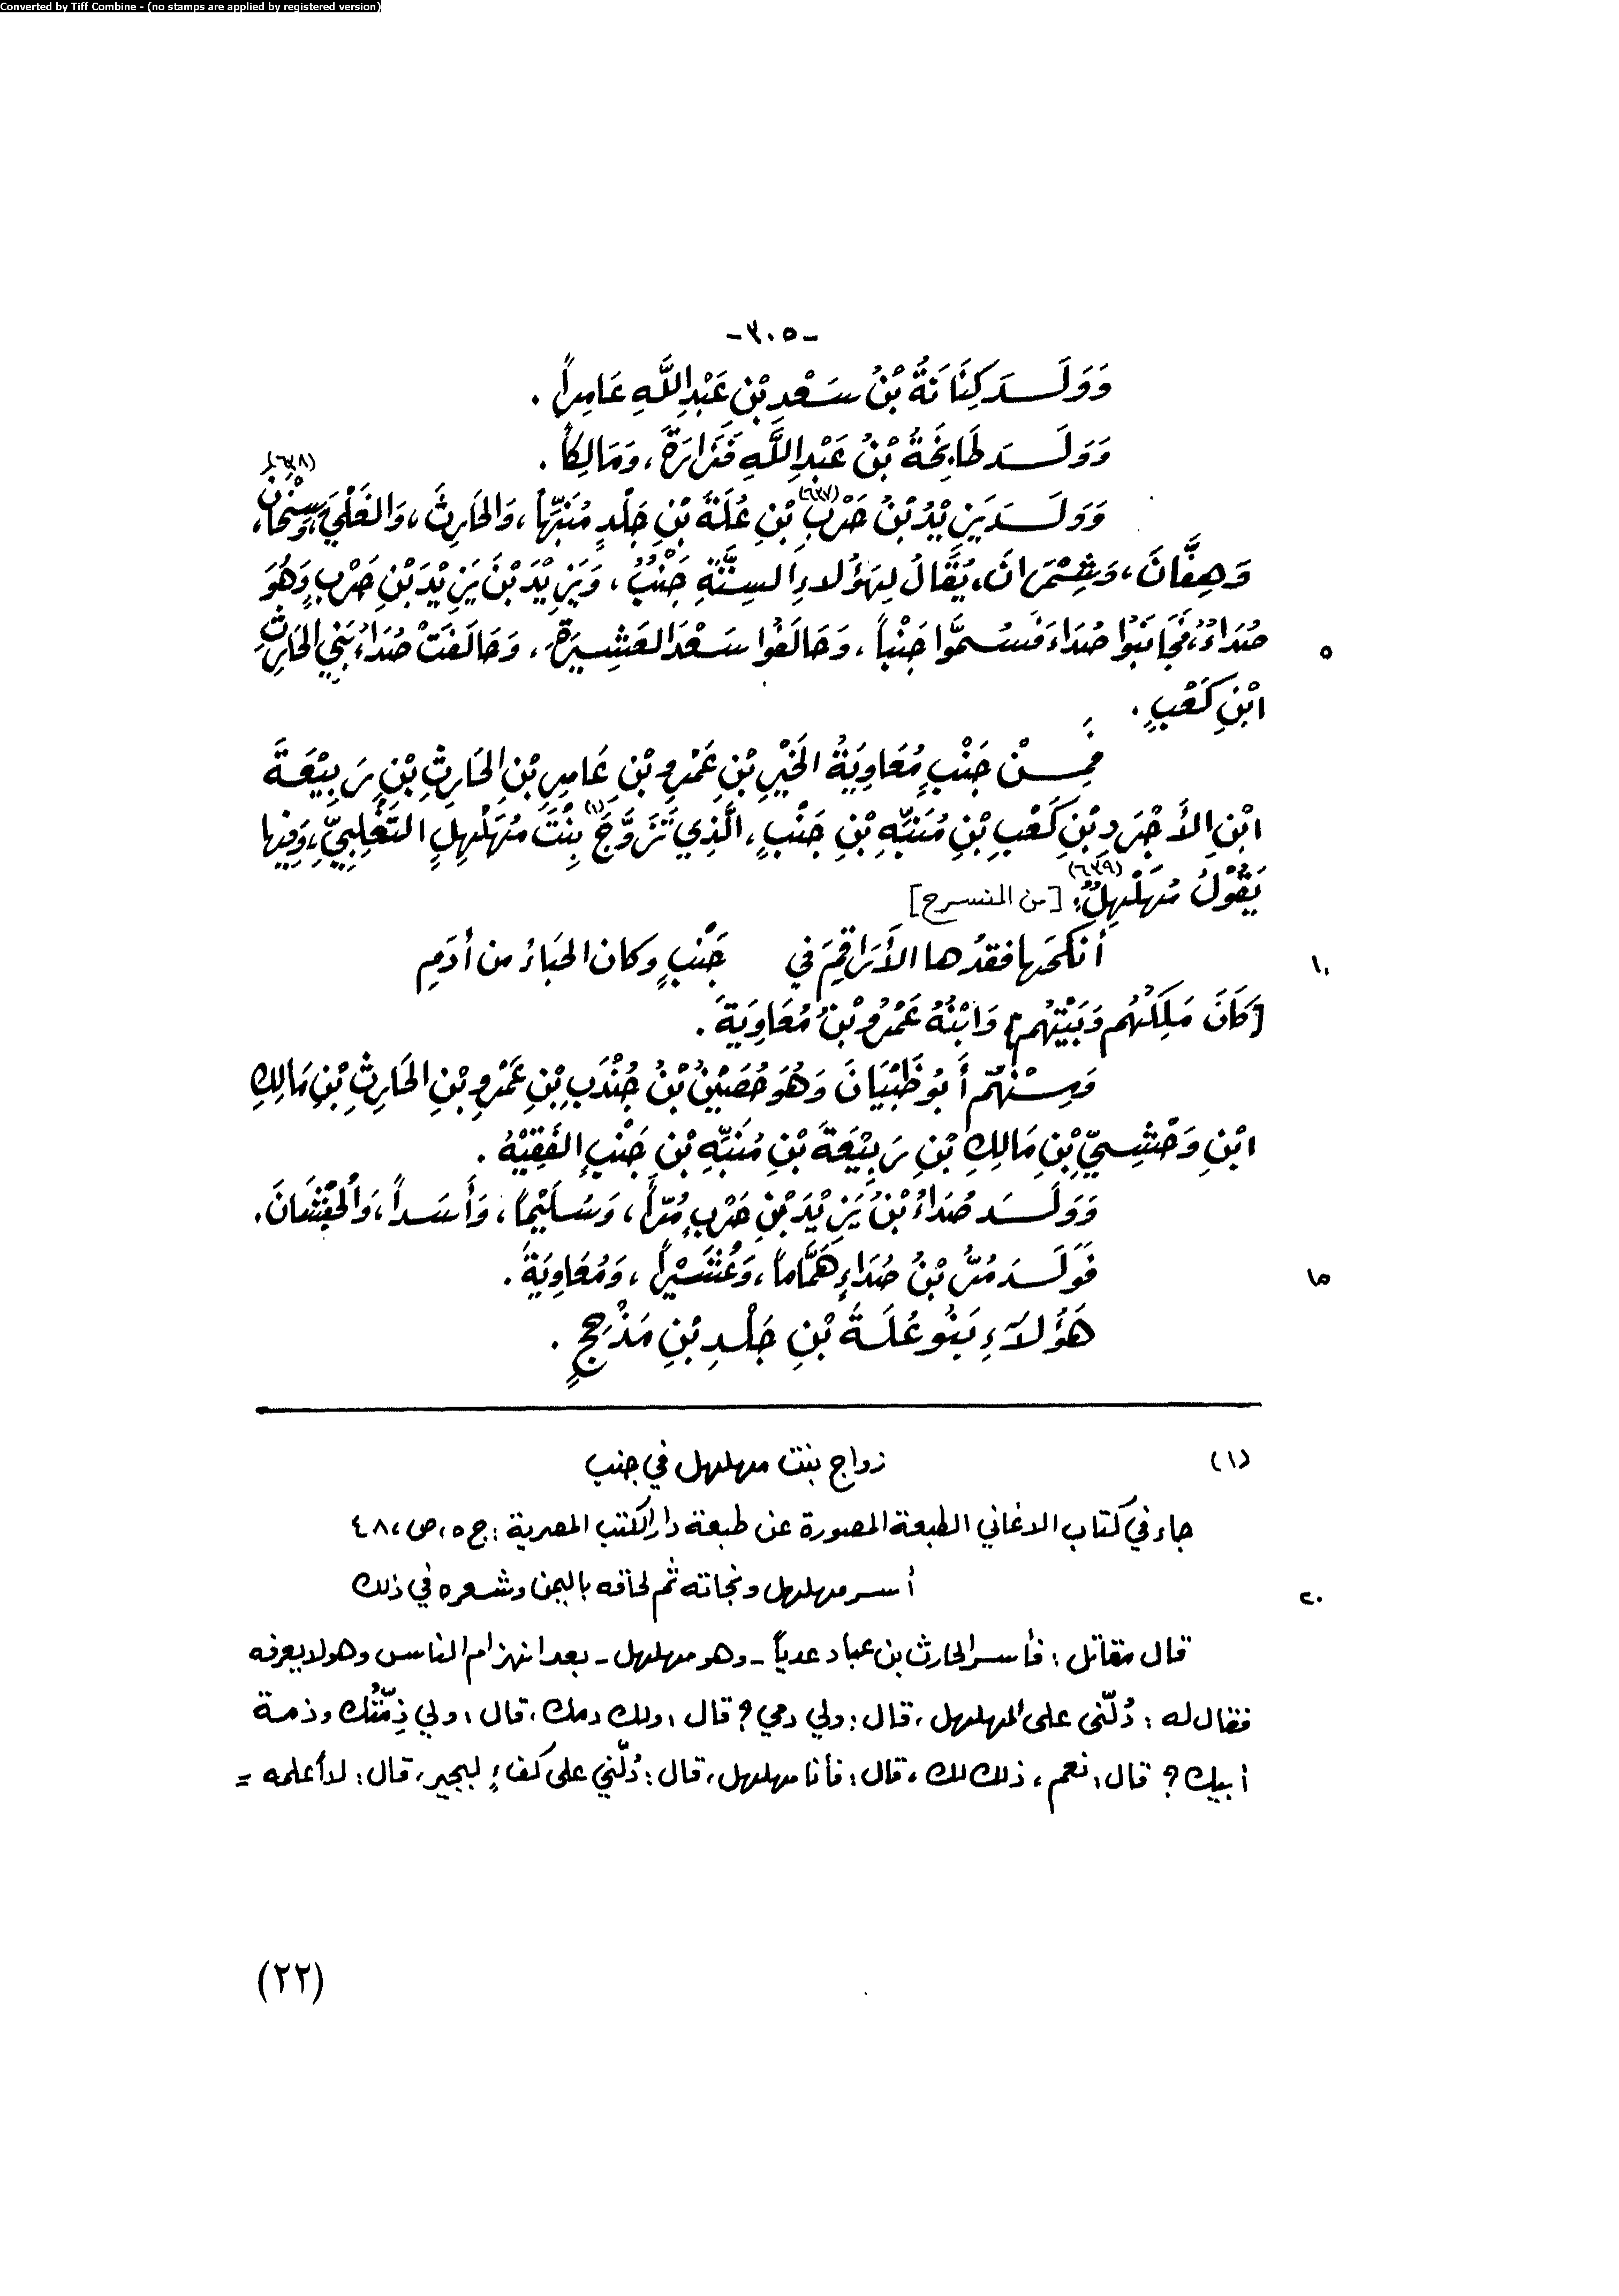 Converted by Tiff Combine - (no stamps are applied by registered version)
-٣٠٥-
وَوَلَــدَ كِنَانَةُ بْنُ سَعْدِ بْنِ عَبْدِ اللَّهِ عَامِراً .
وَوَلَــدَ طَابِخَةُ بْنُ عَبْدِ اللَّهِ فَزَارَةَ، وَمَالِكاً .
وَوَلَــدَ يَزِيْدُ بْنُ حَرْبِ (٦٣٧) بْنِ عُلَةَ بْنِ جَلْدٍ مُنَبِّهاً، وَالحَارِثَ، وَالغَلْيَ، وَسَِنْحَانَ (٦٣٨)،
وَهِفَّانَ، وَشِمْرَانَ، يُقَالُ لِهَؤُلاءِ السِتَّةِ جَنْبٌ، وَيَزِيْدَ بْنَ يَزِيْدَ بْنِ حَرْبٍ وَهُوَ
صُدَاءُ، فَجَانَبُوا صُدَاءَ فَسُمَّوا جَنْباً، وَحَالَفُوا سَعْدَ العَشِيرَةِ، وَحَالَفَتْ صُدَاءُ بَنِي الحَارِثِ
٥
ابْنِ كَعْبٍ .
فَمِــنْ جَنْبٍ مُعَاوِيَةُ الخَيْرِ بْنِ عَمْرِو بْنِ عَامِرِ بْنِ الحَارِثِ بْنِ رَبِيْعَةَ
ابْنِ الأَجْرَدِ بْنِ كَعْبِ بْنِ مُنَبِّهِ بْنِ جَنْبٍ، الَّذِي تَزَوَّجَ (١) بِنْتَ مُهَلْهِلٍ التَّغْلِبِيِّ، وَفِيْهَا
يَقُوْلُ مُهَلْهِلٌ (٦٣٩): [من المنسرح]
أنكحَها فقدُها الأَرَاقِمَ في جَنْبٍ وكان الحَبَاءُ من أَدَمِ
١٠
[كَانَ مَلِكَهُم وَبَيْتَهُم] وَابْنُهُ عَمْرُو بْنُ مُعَاوِيَةَ .
وَمِــنْهُم أَبُو ظَبْيَانَ وَهُوَ حُصَيْنُ بْنُ جُنْدَبِ بْنِ عَمْرِو بْنِ الحَارِثِ بْنِ مَالِكِ
ابْنِ وَحْشِيِّ بْنِ مَالِكِ بْنِ رَبِيْعَةَ بْنِ مُنَبِّهِ بْنِ جَنْبٍ الفَقِيْهُ .
وَوَلَــدَ صُدَاءُ بْنُ يَزِيْدَ بْنِ حَرْبٍ مُرّاً، وَسُلَيْماً، وَأَسَداً،
فَوَلَــدَ مُرُّ بْنُ صُدَاءٍ هَمَّاماً، وَمُعَاوِيَةَ .
١٥
هَؤُلاَءِ بَنُو عُلَةَ بْنِ جَلْدِ بْنِ مَذْحِجٍ .
(١) زواج بنت مهلهل في جنب
جاء في كتاب الاغاني الطبعة المصورة عن طبعة دار الكتب المصرية : ج ٥، ص، ٤٨
أسر مهلهل ونجاته ثم لحاقه باليمن وشعره في ذلك
٢٠
قال مقاتل : فأسر الحارث بن عباد عدياً ـ وهو مهلهل ـ بعد انهزام الناس وهو لا يعرفه
فقال له : دُلّني على المهلهل، قال : ولي دمي ؟ قال : ولك دمك، قال : ولي ذِمّتُك وذمة
أبيك ؟ قال : نعم، ذلك لك، قال : فأنا مهلهل، قال : دُلّني على كفءٍ لبجير، قال : لا أعلمه =
(٢٢)